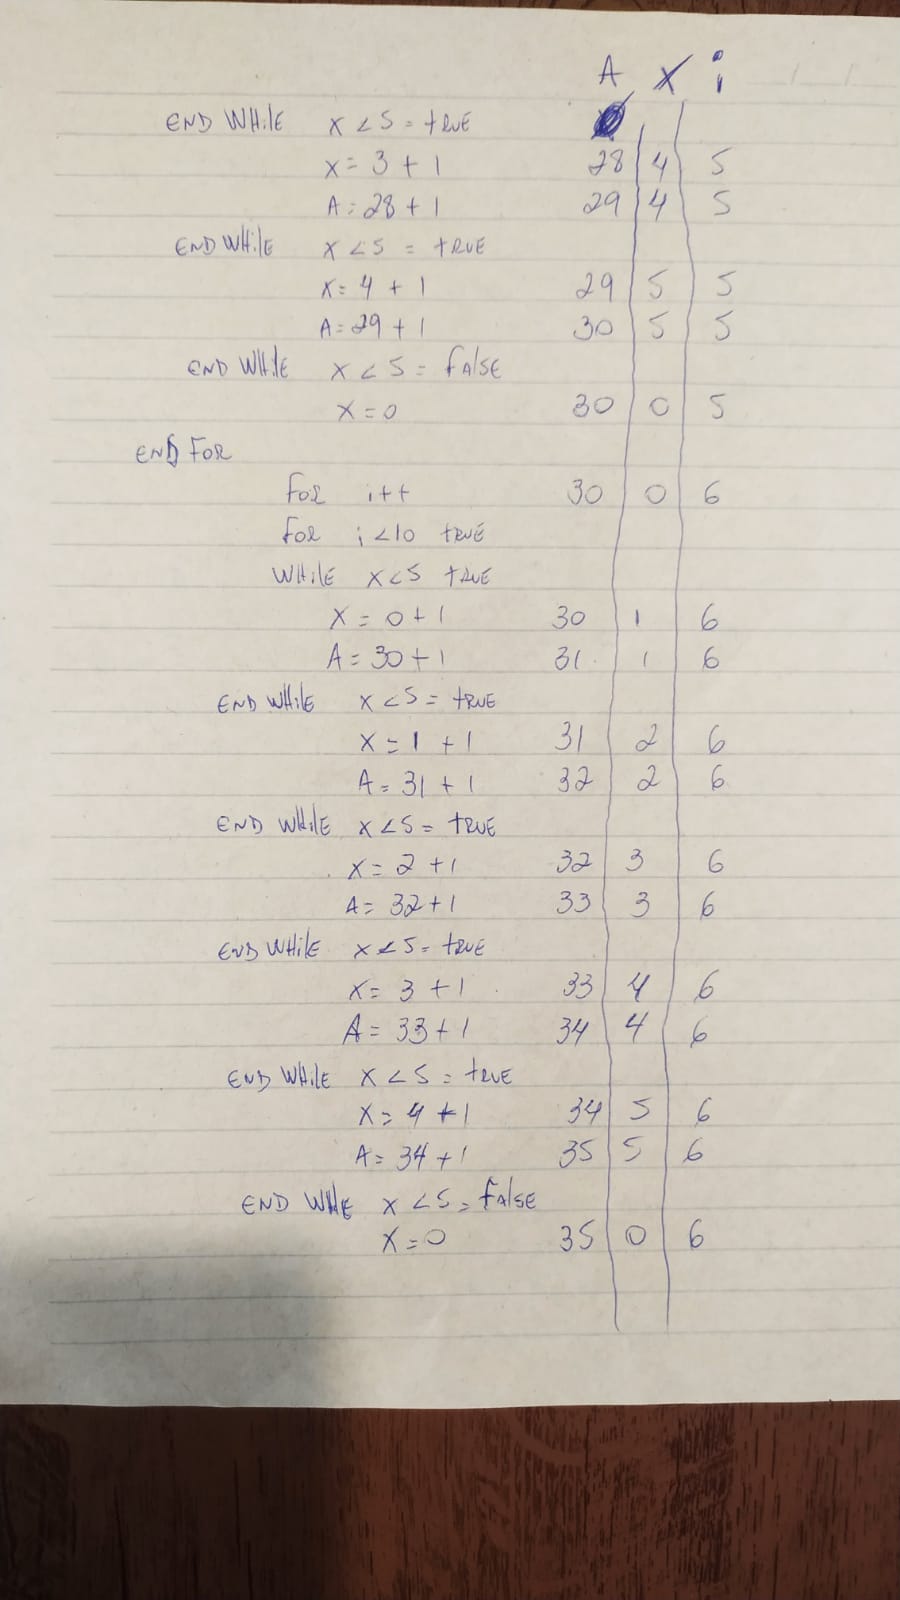 A X i
END WHILE X<5 = TRUE
X = 3 + 1 28 4 5
A = 28 + 1 29 4 5
END WHILE X<5 = TRUE
X = 4 + 1 29 5 5
A = 29 + 1 30 5 5
END WHILE X<5 = FALSE
X = 0 30 0 5
END FOR
FOR i++ 30 0 6
FOR i<10 TRUE
WHILE X<5 TRUE
X = 0 + 1 30 1 6
A = 30 + 1 31 1 6
END WHILE X<5 = TRUE
X = 1 + 1 31 2 6
A = 31 + 1 32 2 6
END WHILE X<5 = TRUE
X = 2 + 1 32 3 6
A = 32 + 1 33 3 6
END WHILE X<5 = TRUE
X = 3 + 1 33 4 6
A = 33 + 1 34 4 6
END WHILE X<5 = TRUE
X = 4 + 1 34 5 6
A = 34 + 1 35 5 6
END WHILE X<5 = FALSE
X = 0 35 0 6